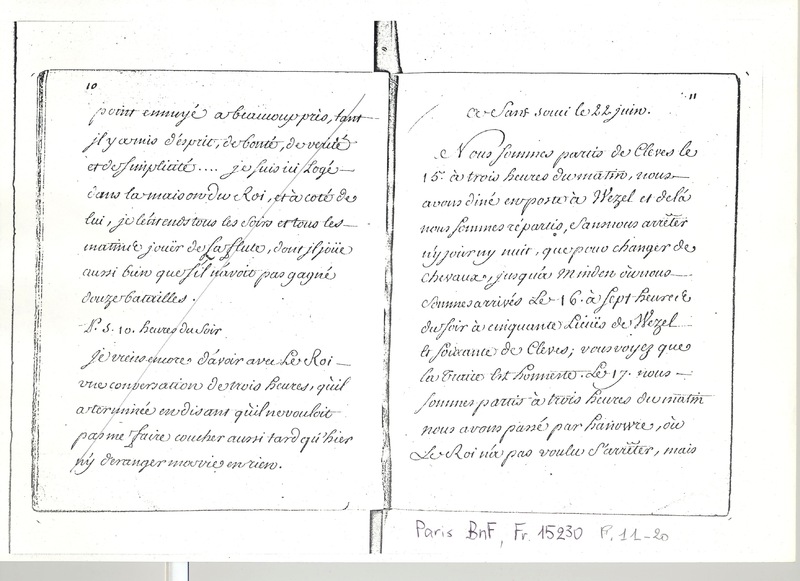 10
point ennuyé a beaucoup près, tant
jl y a mis d'ésprit, de bonté, de verité
et de simplicité.... je suis ici Logé
dans la maison du Roi, et à coté de
lui, je l'entends tous les soirs et tous les
matins jouër de sa flute, dont jl joüe
aussi bien que s'il n'avoit pas gagné
douze batailles.
P.S. 10. heures du soir
Je viens encore d'avoir avec Le Roi
vne conversation de trois heures, qu'il
a terminée en disant qu'il ne vouloit
pas me faire coucher aussi tard qu'hier
n'y deranger ma vie en rien.
11
a Sans souci le 22 juin.
Nous sommes partis de Cleves le
15. à trois heures du matin, nous
avons diné en poste à Wezel et delà
nous sommes répartis, sans nous arrêter
n'y jour ny nuit, que pour changer de
chevaux, jusqu'à Minden où nous
sommes arrivés Le 16. à sept heures
du soir à cinquante Lieuës de Wezel
et soixante de Cleves; vous voyez que
la traite est honneste. Le 17. nous
sommes partis à trois heures du matin
nous avons passé par hanovre, où
Le Roi n'a pas voulu s'arrêter, mais
Paris BnF, Fr. 15230 F. 11-20